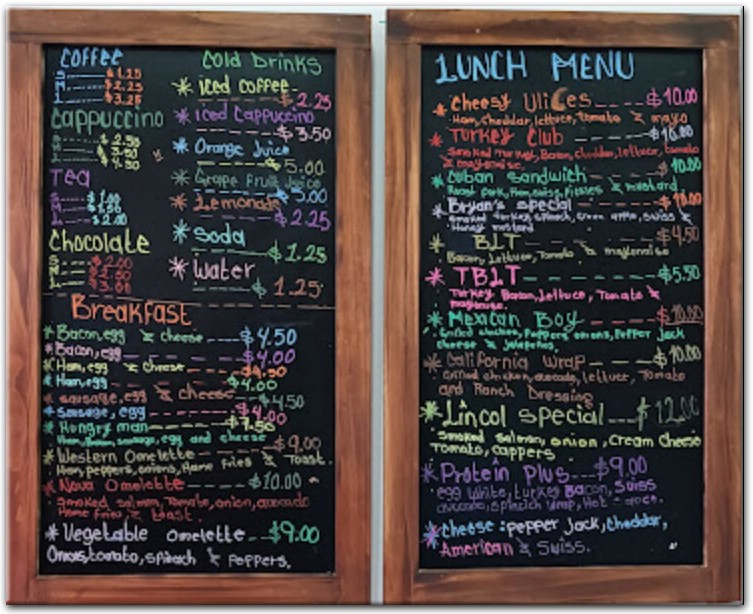 Coffee
S $1.25
M $2.25
L $3.25
Cappuccino
S $2.50
M $3.50
L $4.50
Tea
S $1.00
M
L $2.00
Chocolate
S $2.00
M $2.50
L $3.00
Cold Drinks
* iced coffee
$2.25
* Iced Cappuccino
$3.50
* Orange Juice
$5.00
* Grape Fruit Juice
$5.00
* Lemonade
$2.25
* Soda
$1.25
* Water
$1.25
Breakfast
* Bacon, egg & cheese $4.50
* Bacon, egg $4.00
* Ham, egg & cheese $4.50
* Ham, egg $4.00
* sausage, egg & cheese $4.50
* sausage, egg $4.00
* Hungry man $7.50
Ham, Bacon, sausage, egg and cheese
* Western Omelette $9.00
Ham, peppers, onions, Home fries & Toast.
* Nova Omelette $10.00
Smoked salmon, Tomato, onion, avocado
Home fries & toast.
* Vegetable Omelette $9.00
Onions, tomato, spinach & peppers,
LUNCH MENU
* Cheesy Ulices $10.00
Ham, cheddar, lettuce, tomato & mayo
* Turkey Club $10.00
Smoked turkey, Bacon, cheddar, lettuce, tomato
& mayonaise.
* Cuban Sandwich $10.00
Roast pork, Ham, swiss, Pickles & mustard
* Bryan's special $10.00
smoked turkey, spinach, Green apple, swiss &
Honey mustard
* BLT $4.50
Bacon, Lettuce, Tomato & mayonaise
* TBLT $5.50
Turkey Bacon, Lettuce, Tomato &
mayonaise.
* Mexican Boy $10.00
Grilled chicken, Peppers, onions, Pepper jack
cheese & jalapeños.
* California Wrap $10.00
Grilled chicken, avocado, lettuce, Tomato
and Ranch Dressing
* Lincol Special $12.00
Smoked salmon, onion, Cream Cheese
Tomato, cappers
* Protein Plus $9.00
egg white, turkey Bacon, Swiss
avocado, spinach wrap, Hot
* cheese: pepper jack, cheddar,
American & Swiss.